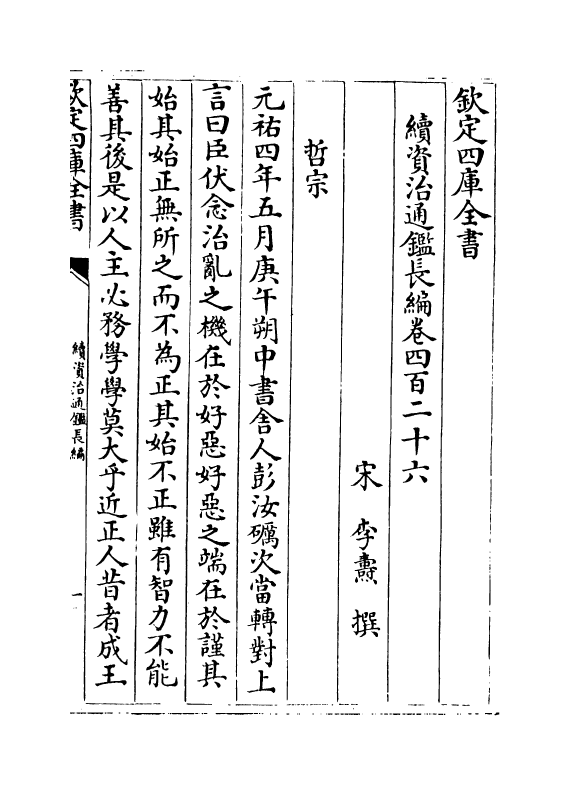 欽定四庫全書
續資治通鑑長編卷四百二十六
宋 李燾 撰
哲宗
元祐四年五月庚午朔中書舍人彭汝礪次當轉對上
言曰臣伏念治亂之機在於好惡好惡之端在於謹其
始其始正無所之而不為正其始不正雖有智力不能
善其後是以人主必務學學莫大乎近正人昔者成王
欽定四庫全書
續資治通鑑長編
一